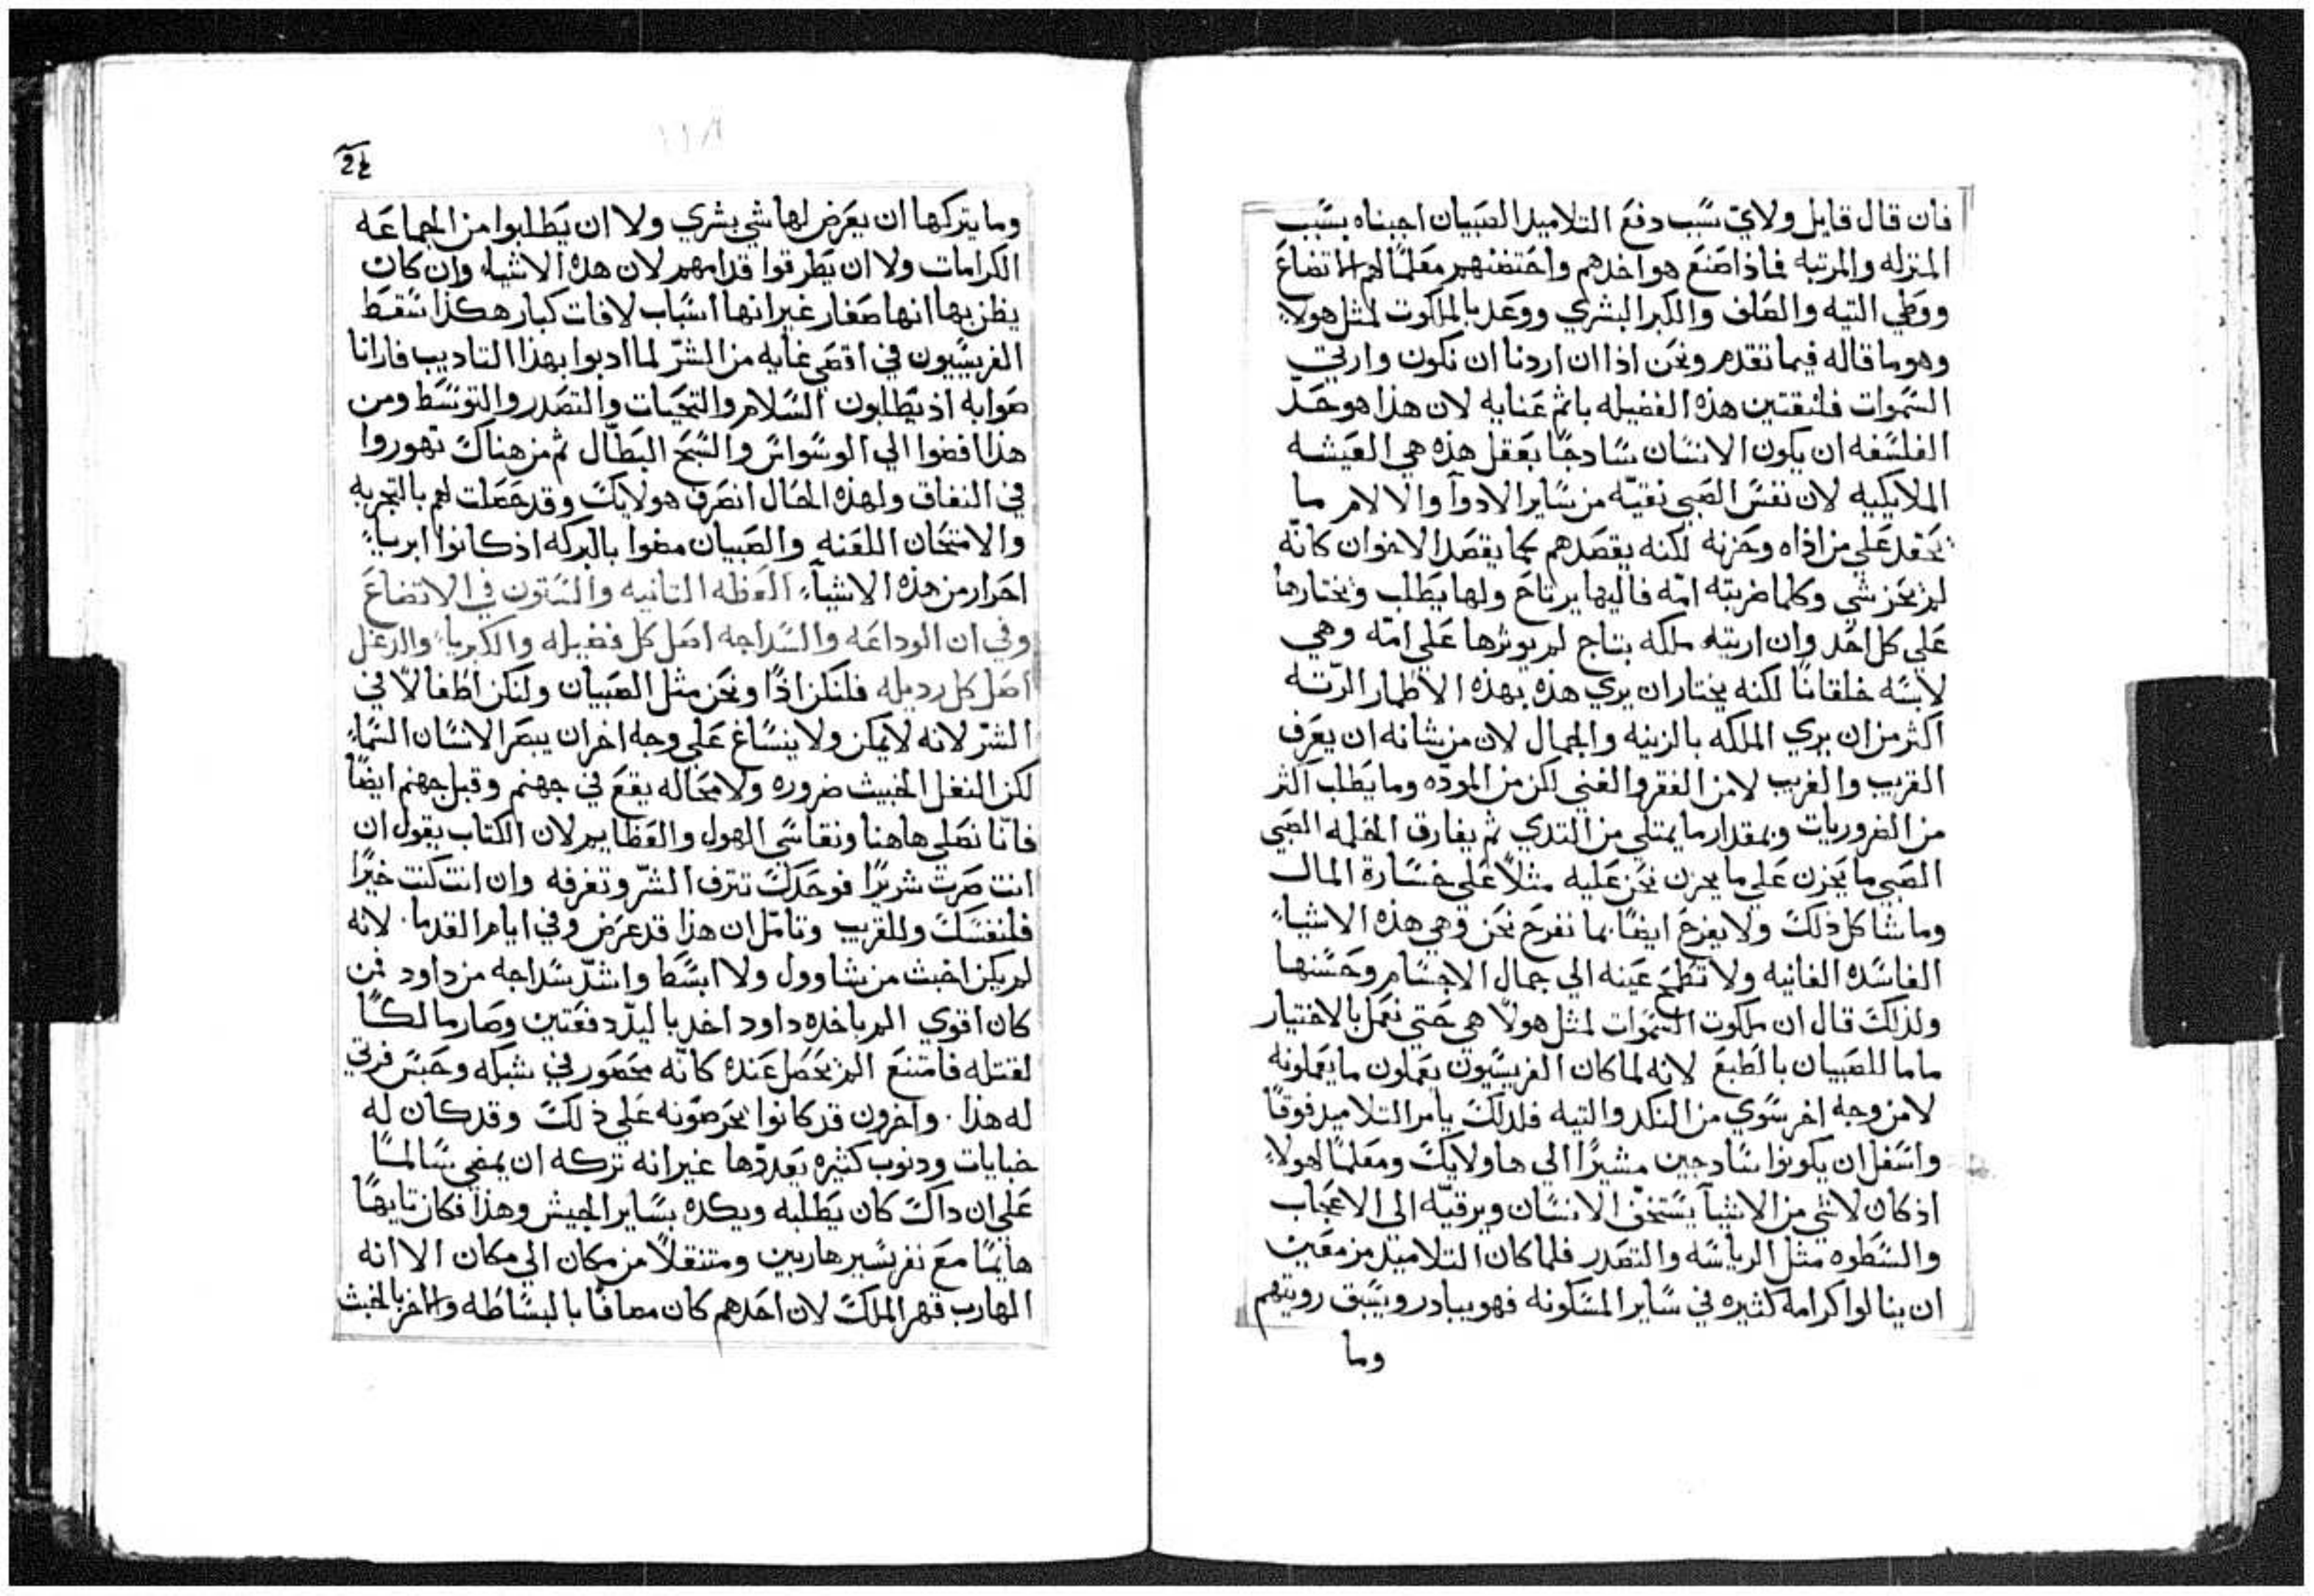 فان قال قايل ولاي سبب دفع التلاميد الصبيان اجبناه بسبب
المنزله والمرتبه فماذا صنع هو اخدهم واحتضنهم معلمًا لهم الاتضاع
ووطي التيه والصلف والكبر البشري ووعد بالملكوت لمثل هولاء
وهو ما قاله فيما تقدم ونحن اذا ان اردنا ان نكون وارتي
السموات فلنقتين هذه الفضيله باتم عنايه لان هذا هو حدّ
الفلسفه ان يكون الانسان سادجًا بعقل هذه هي العيشه
الملايكيه لان نفس الصبي نقيّه من ساير الادوآ والالام ما
يحقد علي من اذاه وحزنه لكنه يقصدهم كما يقصد الاخوان كانّه
لم يحز شي وكلما ضربته امّه فاليها يرتاح ولها يطلب ويختارها
علي كل احد وان اريته ملكه بتاج لم يوثرها علي امّه وهي
لابسه خلقانًا لكنه يختار ان يري هذه بهذه الاطمار الرّته
اكثر من ان يري الملكه بالزينه والجمال لان من شانه ان يعرف
القريب والغريب لا من الفقر والغني لكن من المودّه وما يطلب اكثر
من الضروريات وبمقدار ما يمتلي من التدي ثم يفارق الحلمه الصبي
الصبي ما يحزن علي ما يحزن نحن عليه مثلاً علي خسارة المال
وما شاكل ذلك ولا يفرح ايضًا بما نفرح نحن وهي هذه الاشياء
الفاسده الفانيه ولا تطمح عينه الي جمال الاجسام وحسنها
ولذلك قال ان ملكوت السموات لمثل هولاّ هي حتي نعمل بالاختيار
ماما للصبيان بالطبع لانه لما كان الفريسيون يعملون ما يعملونه
لا من وجه اخر سوي من النكد والتيه فلدلك يامر التلاميد فوقًا
واسفل ان يكونوا سادجين مشيرًا الي هاولايك ومعلمًا لهولاء
اذ كان لا شي من الاشيآ يستخفّ الانسان ويرقيّه الي الاعجاب
والسطوه مثل الرياسه والتصدر فلما كان التلاميد مزمعين
ان ينالوا كرامه كثيره في ساير المسكونه فهو يبادر ويسبق رويتهم
وما
وما يتركها ان يعرض لها شي بشري ولا ان يطلبوا من الجماعه
الكرامات ولا ان يطرقوا قدامهم لان هذه الاشياء وان كان
يظن بها انها صغار غير انها اسباب لافات كبار هكذا سقط
الفريسيون في اقصي غايه من الشرّ لما ادبوا بهذا التاديب فارانا
صوابه اذ يطلبون السلام والتحيات والتصدر والتوسط ومن
هذا افضوا الي الوسواس والسبح البطّال ثم من هناك تهوروا
في النفاق ولهذه الحال انصرف هولايك وقد حصلت لهم بالتجربه
والامتحان اللعنه والصبيان مضوا بالبركه اذ كانوا ابرياء
احرار من هذه الاشيآء العظه التانيه والستون في الاتضاع
وفي ان الوداعه والسداجه اصل كل فضيله والكبرياء والدغل
اصل كل رديله فلنكن اذًا ونحن مثل الصبيان ولنكن اطفالاً في
الشرّ لانه لا يمكن ولا ينساغ علي وجه اخر ان يبصر الانسان السماء
لكن النغل الخبيث ضروره ولا محاله يقع في جهنم وقبل جهنم ايضًا
فانّا نصلي هاهنا ونقاسي الهول والعظايم لان الكتاب يقول ان
انت صرت شريرًا فوحدك تترف الشرّ وتغرفه وان انت كنت خيرًا
فلنفسك وللقريب وتامّل ان هذا قد عرض وفي ايام القدما لانه
لم يكن اخبث من شاوول ولا ابسط واشدّ سداجه من داود فمن
كان اقوي الم ياخده داود اخد باليدّ دفعتين وصار مالكًا
لقتله فامتنع الم يحصل عنده كانّه محصور في شبكه وحبس فرتي
له هذا واخرون قد كانوا يحرصونه علي ذلك وقد كان له
خبايات ودنوب كثيره يعددّها غير انه تركه ان يمضي سالمًا
علي ان داك كان يطلبه ويكده بساير الجيش وهذا فكان تايهًا
هايمًا مع نفر يسير هاربين ومتنقلاً من مكان الي مكان الا انه
الهارب قهر الملك لان احدهم كان مصافًا بالبساطه والاخر بالخبث